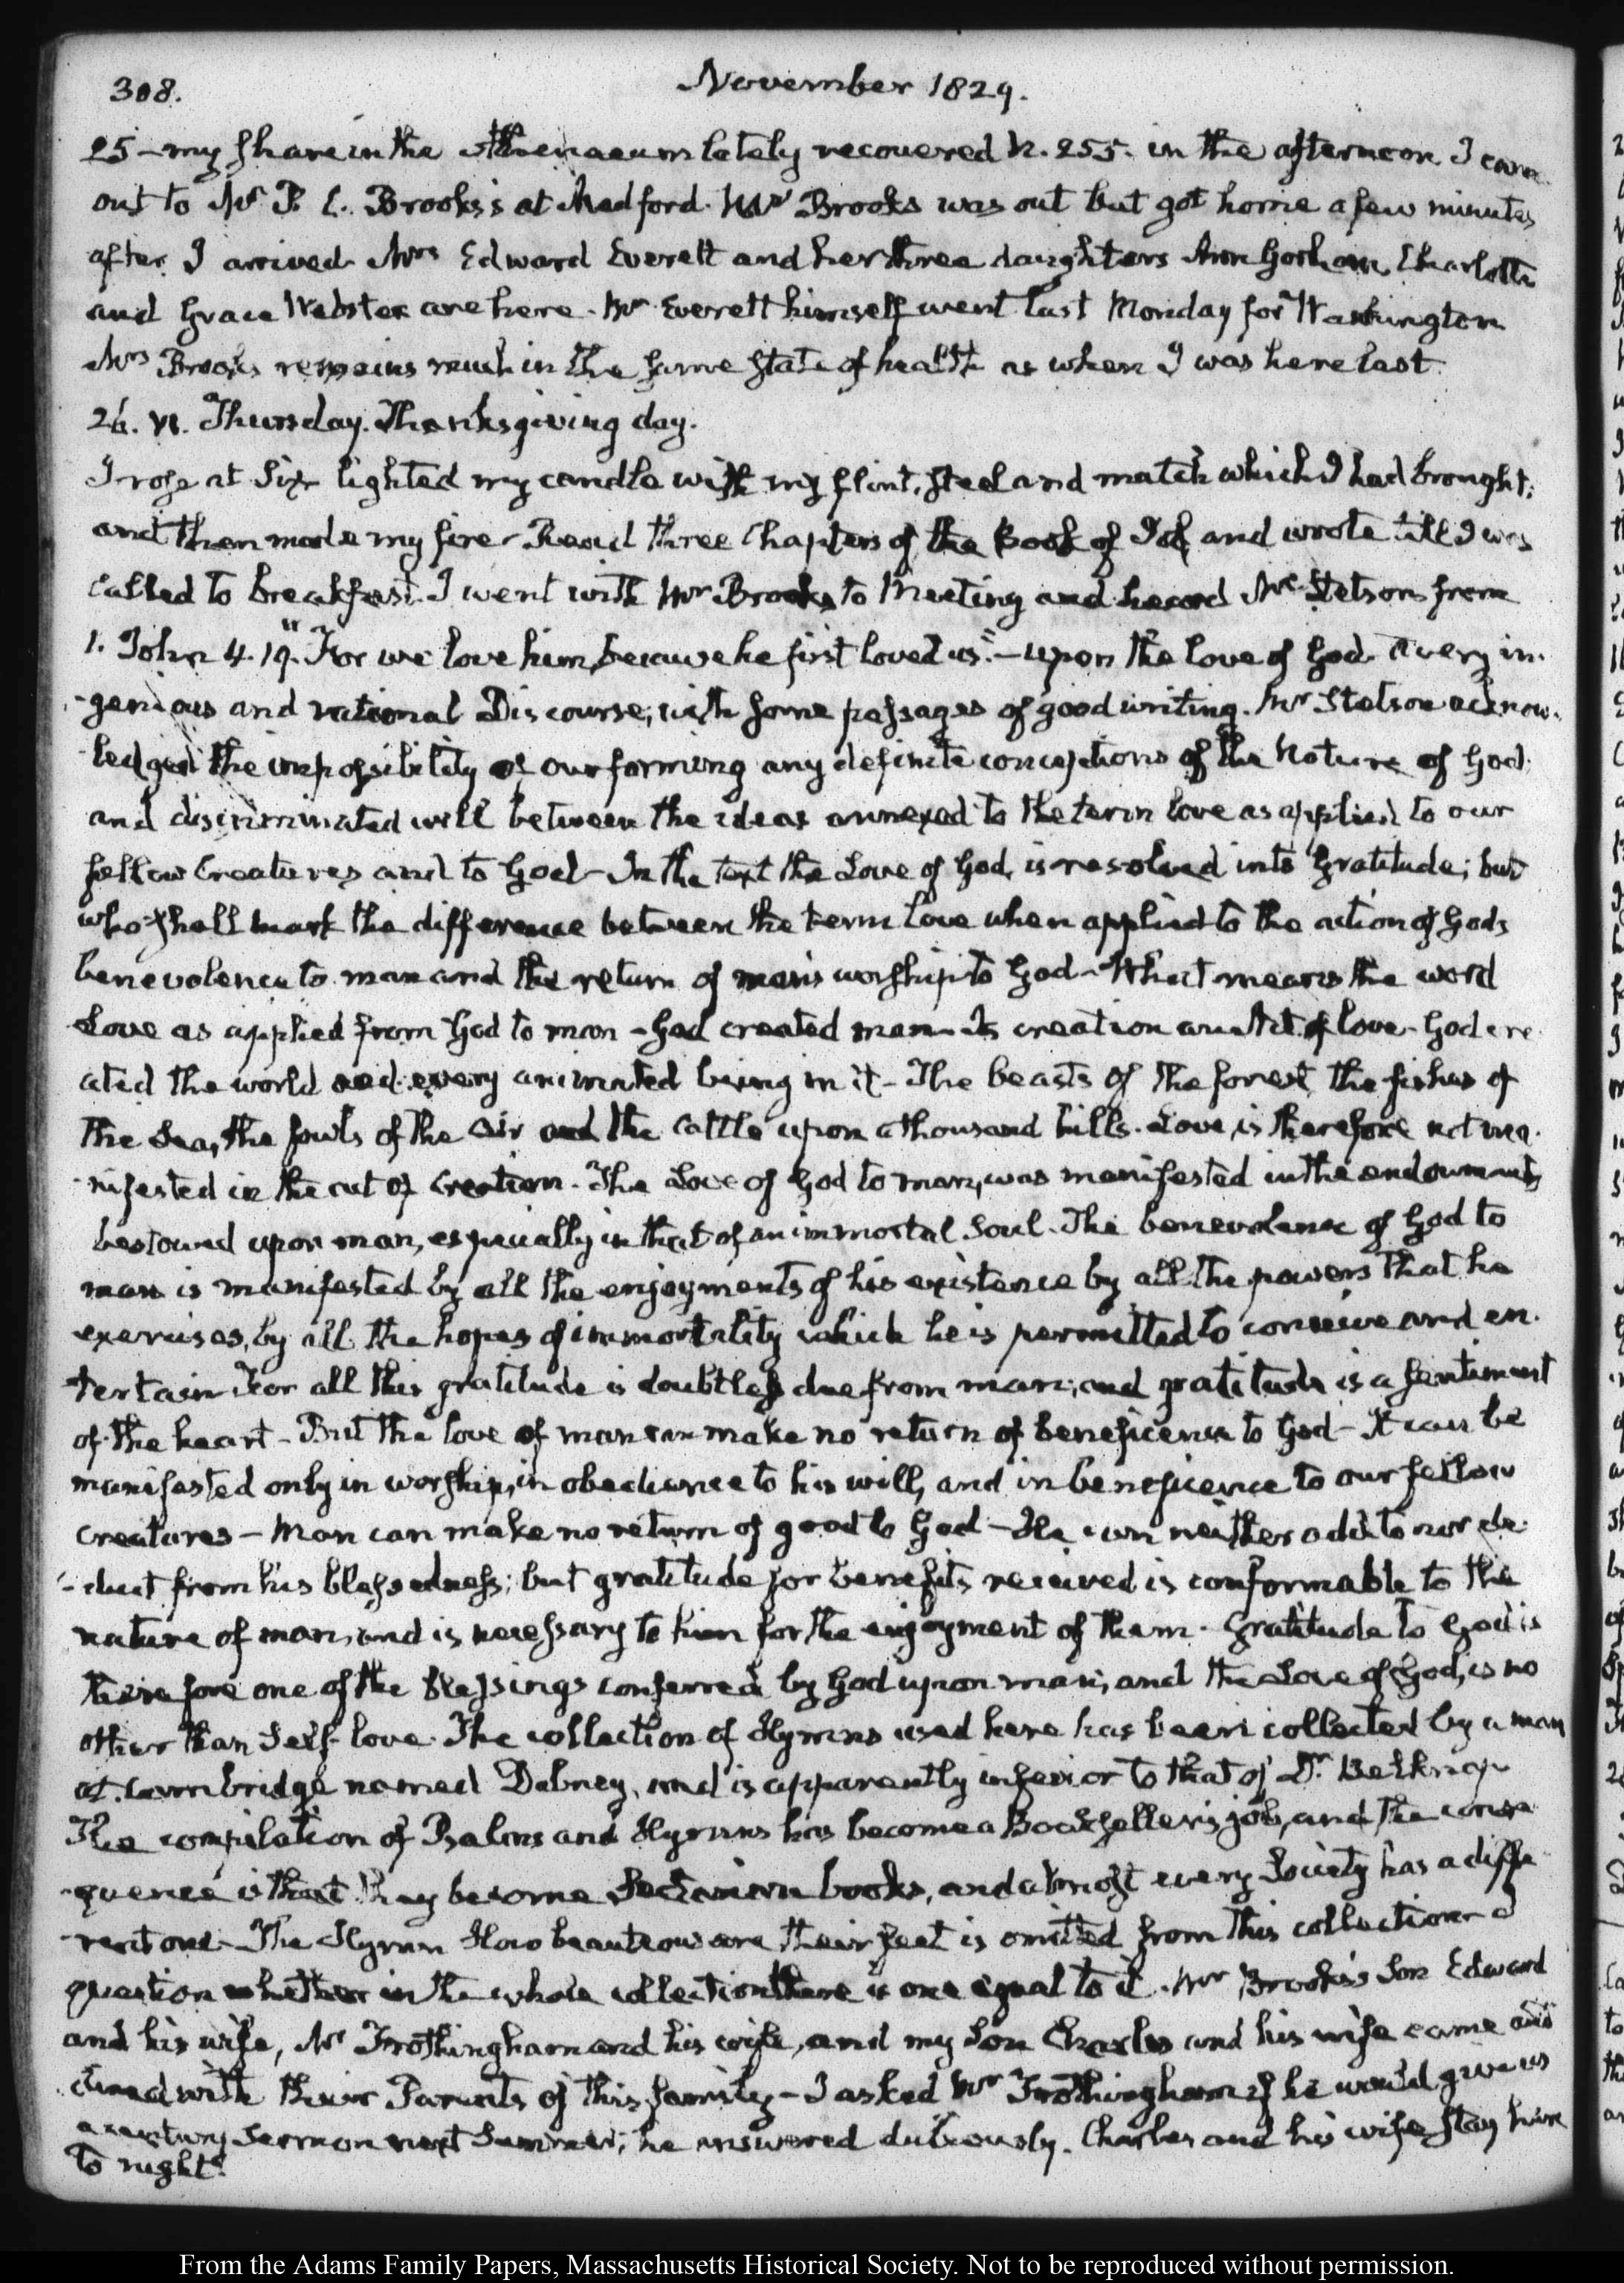 308.
November 1829.
25 – my share in the Athenaeum lately recovered N. 255. in the afternoon I came
out to Mr. P. C. Brooks's at Medford. Mr Brooks was out but got home a few minutes
after I arrived. Mrs Edward Everett and her three daughters Ann Gorham, Charlotte
and Grace Webster are here. Mr. Everett himself went last Monday for Washington
Mrs Brooks remains much in the same state of health as when I was here last.
26. VI. Thursday. Thanksgiving day.
I rose at Six lighted my candle with my flint, steel and match which I had brought;
and then made my fire – Read three Chapters of the Book of Job and wrote till I was
called to breakfast. I went with Mr Brooks to Meeting and heard Mr. Stetson from
1. John 4. 19. "For we love him because he first loved us." – upon the love of God. A very in-
-genious and rational Discourse, with some passages of good writing. Mr Stetson acknow-
-ledged the impossibility of our forming any definite conceptions of the Nature of God.
and discriminated well between the ideas annexed to the term love as applied to our
fellow Creatures and to God – In the text the Love of God, is resolved into Gratitude; but
who shall mark the difference between the term Love when applied to the action of Gods
benevolence to man and the return of man's worship to God – What means the word
Love as applied from God to man – God created man – Is creation an act of love – God cre
ated the world and every animated being in it – The beasts of the forest, the fishes of
the Sea, the fowls of the air and the Cattle upon a thousand hills. Love, is therefore not ma-
-nifested in the act of Creation – The Love of God to man, was manifested in the endowments
bestowed upon man, especially in that of an immortal Soul. The benevolence of God to
man is manifested by all the enjoyments of his existence by all the powers that he
exercises, by all the hopes of immortality which he is permitted to conceive and en-
tertain For all this gratitude is doubtless due from man; and gratitude is a sentiment
of the heart – But the love of man can make no return of beneficence to God – It can be
manifested only in worship, in obedience to his will, and in beneficence to our fellow
Creatures – Man can make no return of good to God – He can neither add to nor de-
-duct from his blessedness; but gratitude for benefits received is conformable to the
nature of man, and is necessary to him for the enjoyment of them. Gratitude to God is
therefore one of the blessings conferred by God upon man; and the Love of God, is no
other than Self-love. The collection of Hymns used here has been collected by a man
at Cambridge named Dabney, and is apparently inferior to that of Dr. Belknap
The compilation of Psalms and Hymns has become a Bookseller's job, and the conse-
-quence is that they become Sectarian books, and almost every Society has a diffe-
-rent one – The Hymn How beauteous are their feet is omitted from this collection – I
question whether in the whole collection there is one equal to it. Mr Brooks's Son Edward
and his wife, Mr Frothingham and his wife, and my Son Charles and his wife came and
dined with their Parents of this family – I asked Mr Frothingham if he would give us
a century Sermon next Summer; he answered dubiously. Charles and his wife stay here
to night.
From the Adams Family Papers, Massachusetts Historical Society. Not to be reproduced without permission.